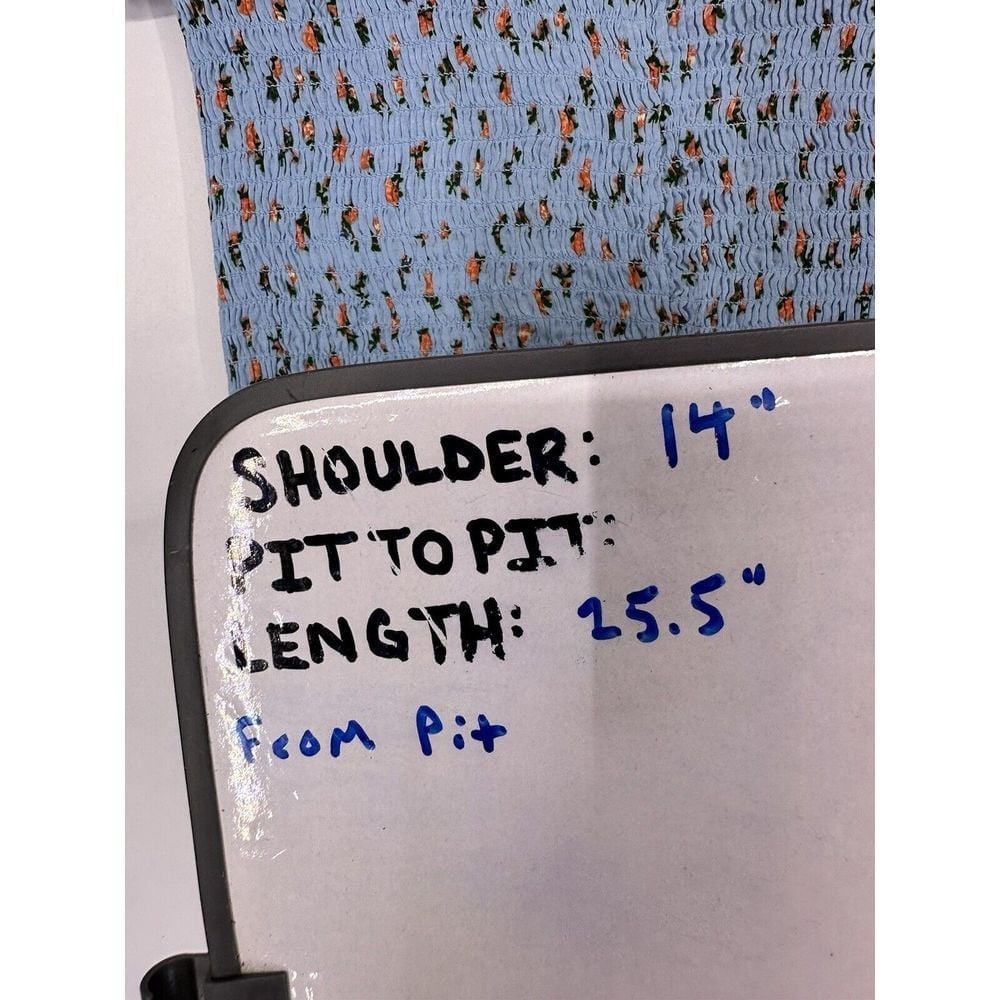 SHOULDER: 14"
PIT TO PIT:
LENGTH: 25.5"
From Pit